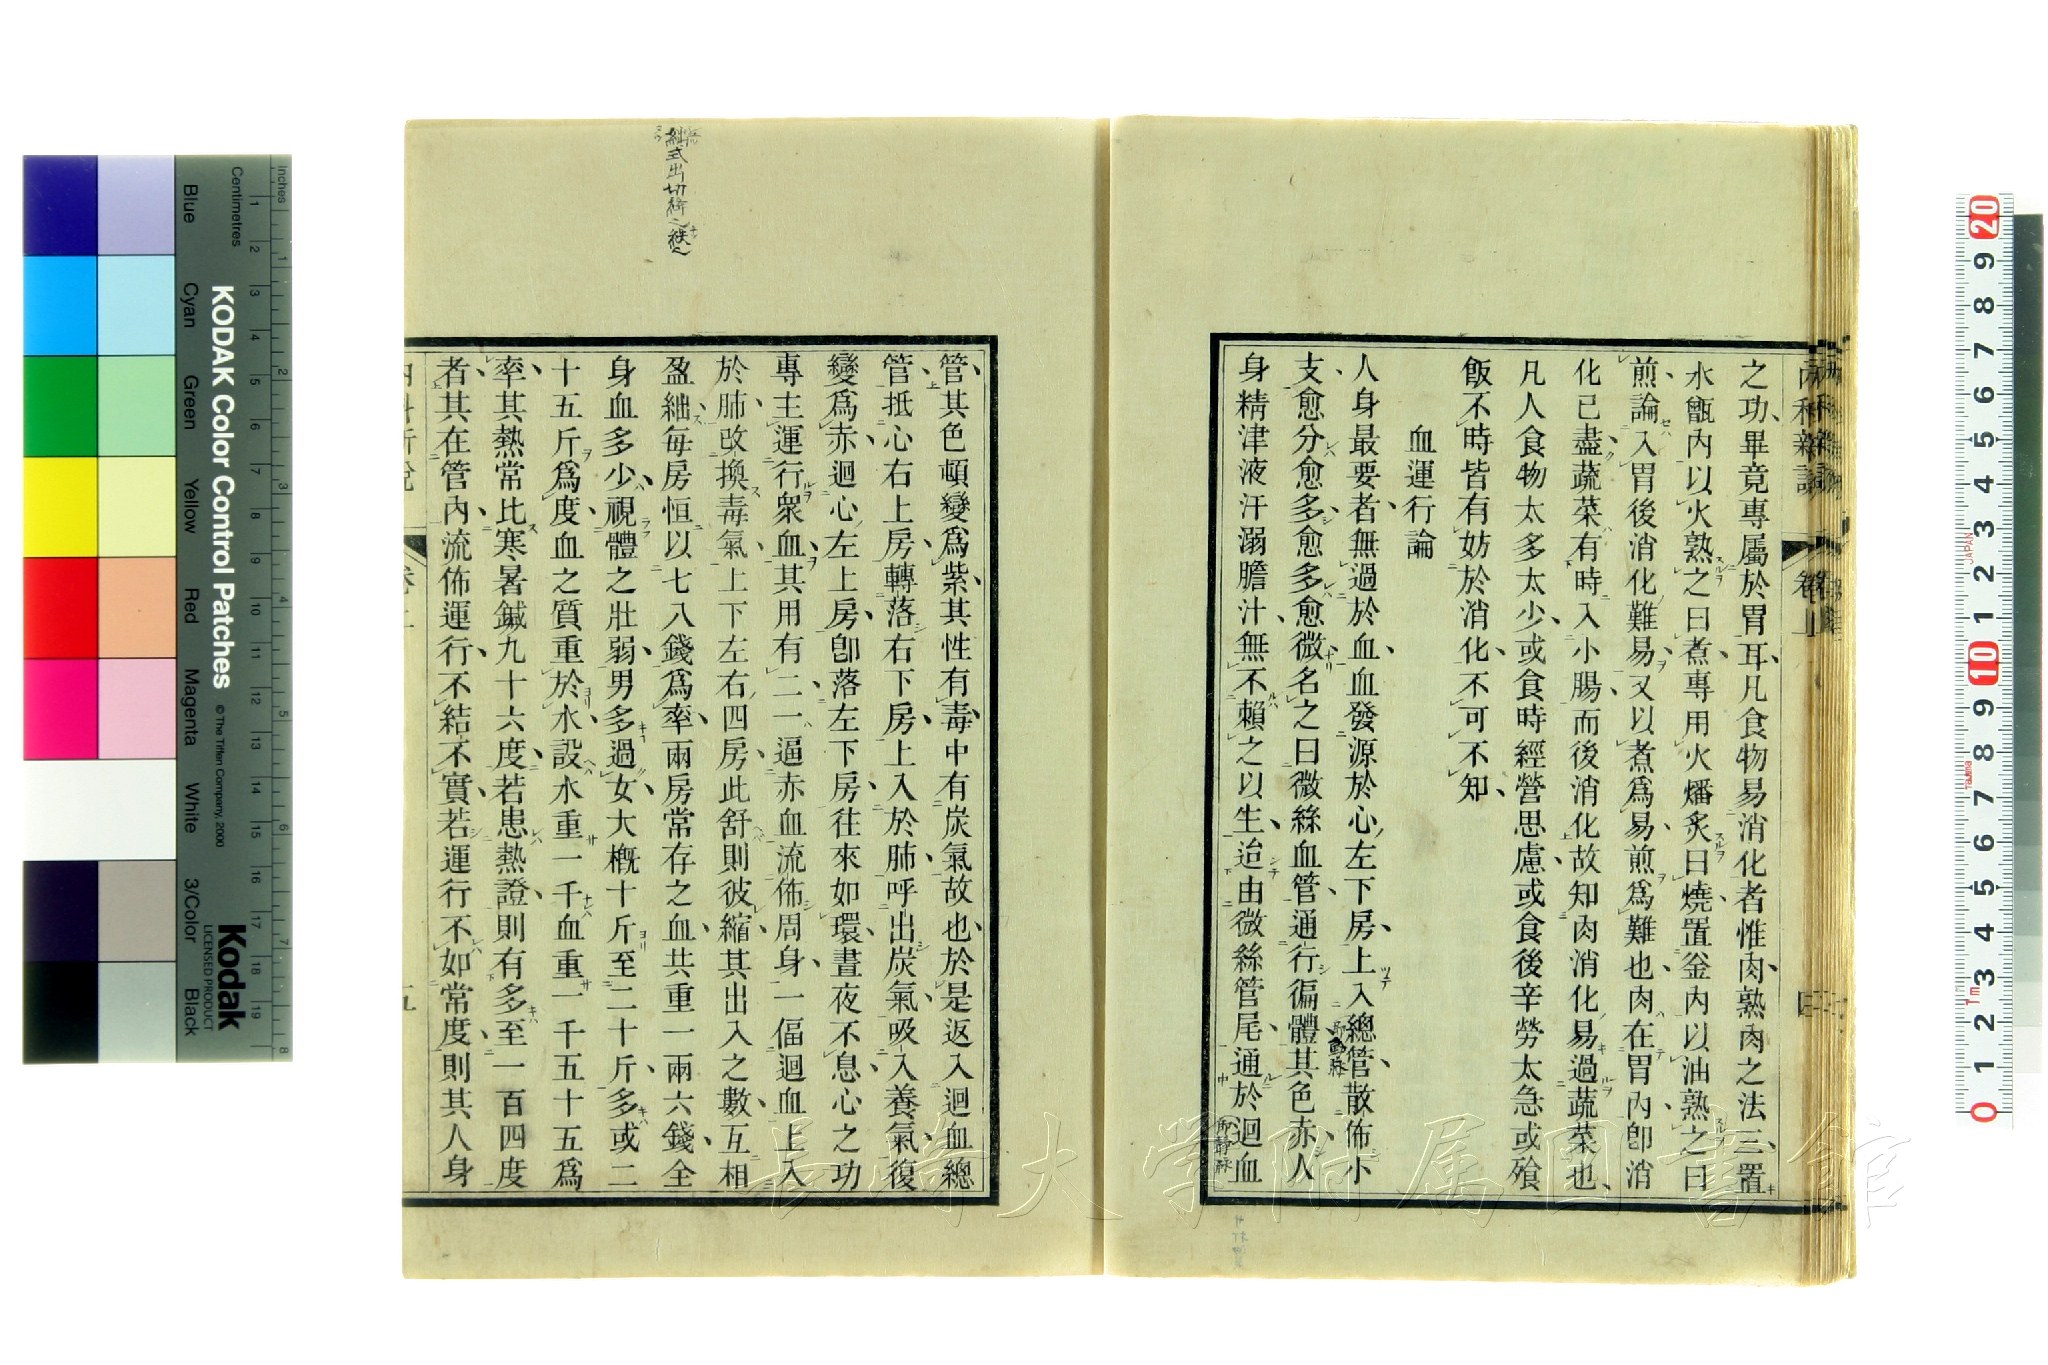 之功畢竟專屬於胃耳凡食物易消化者惟肉熟肉之法三置
水甑內以火熟之曰煮專用火燔炙曰燒置釜內以油熟之曰
煎論入胃後消化難易又以煮爲易煎爲難也肉在胃內卽消
化已盡蔬菜有時入小腸而後消化故知肉消化易過蔬菜也
凡人食物太多太少或食時經營思慮或食後辛勞太急或飱
飯不時皆有妨於消化不可不知
血運行論
人身最要者無過於血血發源於心左下房上入總管散佈小
支愈分愈多愈多愈微名之曰微絲血管通行徧體其色赤人
身精津液汗溺膽汁無不賴之以生迨由微絲管尾通於迴血
卽動脉
卽靜脉
管其色頓變爲紫其性有毒中有炭氣故也於是返入迴血總
管抵心右上房轉落右下房上入於肺呼出炭氣吸入養氣復
變爲赤迴心左上房卽落左下房往來如環晝夜不息心之功
專主運行衆血其用有二一逼赤血流佈周身一偪迴血上入
於肺改換毒氣上下左右四房此舒則彼縮其出入之數互相
盈絀每房恒以七八錢爲率兩房常存之血共重一兩六錢全
身血多少視體之壯弱男多過女大槪十斤至二十斤多或二
十五斤爲度血之質重於水設水重一千血重一千五十五爲
率其熱常比寒暑鍼九十六度若患熱證則有多至一百四度
者其在管內流佈運行不結不實若運行不如常度則其人身
內科新說
卷上
五
KODAK Color Control Patches
© The Tiffen Company, 2000
Kodak
LICENSED PRODUCT
Inches
Centimetres
Blue
Cyan
Green
Yellow
Red
Magenta
White
3/Color
Black
JAPAN
Tajima
長崎大学附属図書館